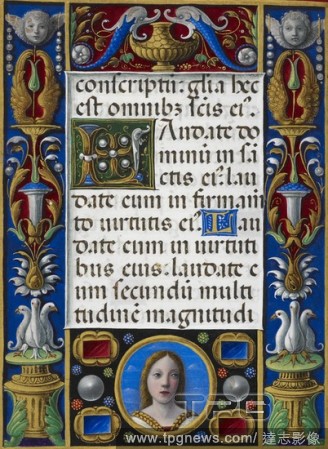 conscriptū: glīa hec
est omnibꝫ scīs eiꝰ.
Laudate do
minū in sā
ctis eiꝰ: lau
date eum in firmam
to uirtutis eiꝰ. Lau
date eum in uirtuti
bus eius: laudate e
um secundū multi
tudinē magnitudi
TPG
www.tpgnews.com/達志影像